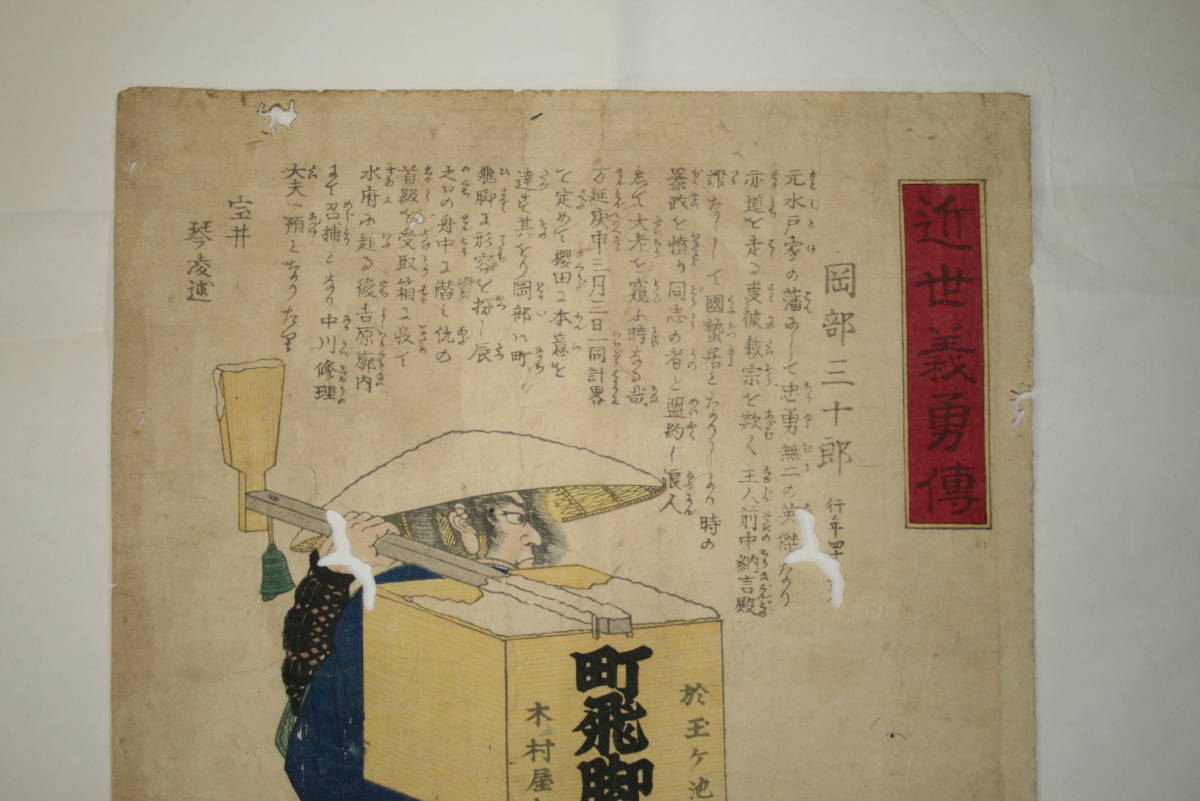 近世義勇傳
岡部三十郎 行年四十
元水戸家の藩にして忠勇無二の英傑なり
亦道を走る吏彼載宗を欺く王人前中納言殿
罪なくして國蟄居となりしより時の
暴政を憤り同志の者と盟約し浪人
して大老を窺ふ時なる哉
万延庚申三月三日一同計畧
を定めて櫻田に本意を
達す其をり岡部ハ町
飛脚に形容を扮し辰
之口の舟中に潜し仇の
首級を受取箱に收て
水府に赴る後吉原廓内
にて召捕となり中川修理
大夫へ預となりたり
宝井
琴凌述
町飛脚
於玉ケ池
木村屋